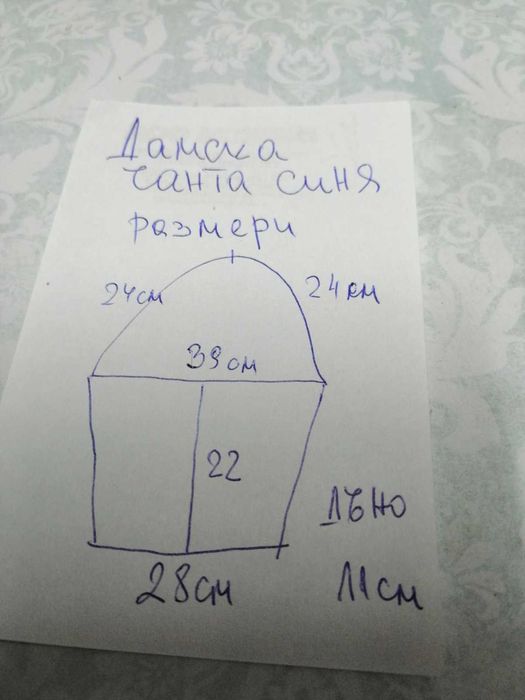 Дамска
чанта синя
размери
24см 24см
39см
22
Дъно
28см 11см